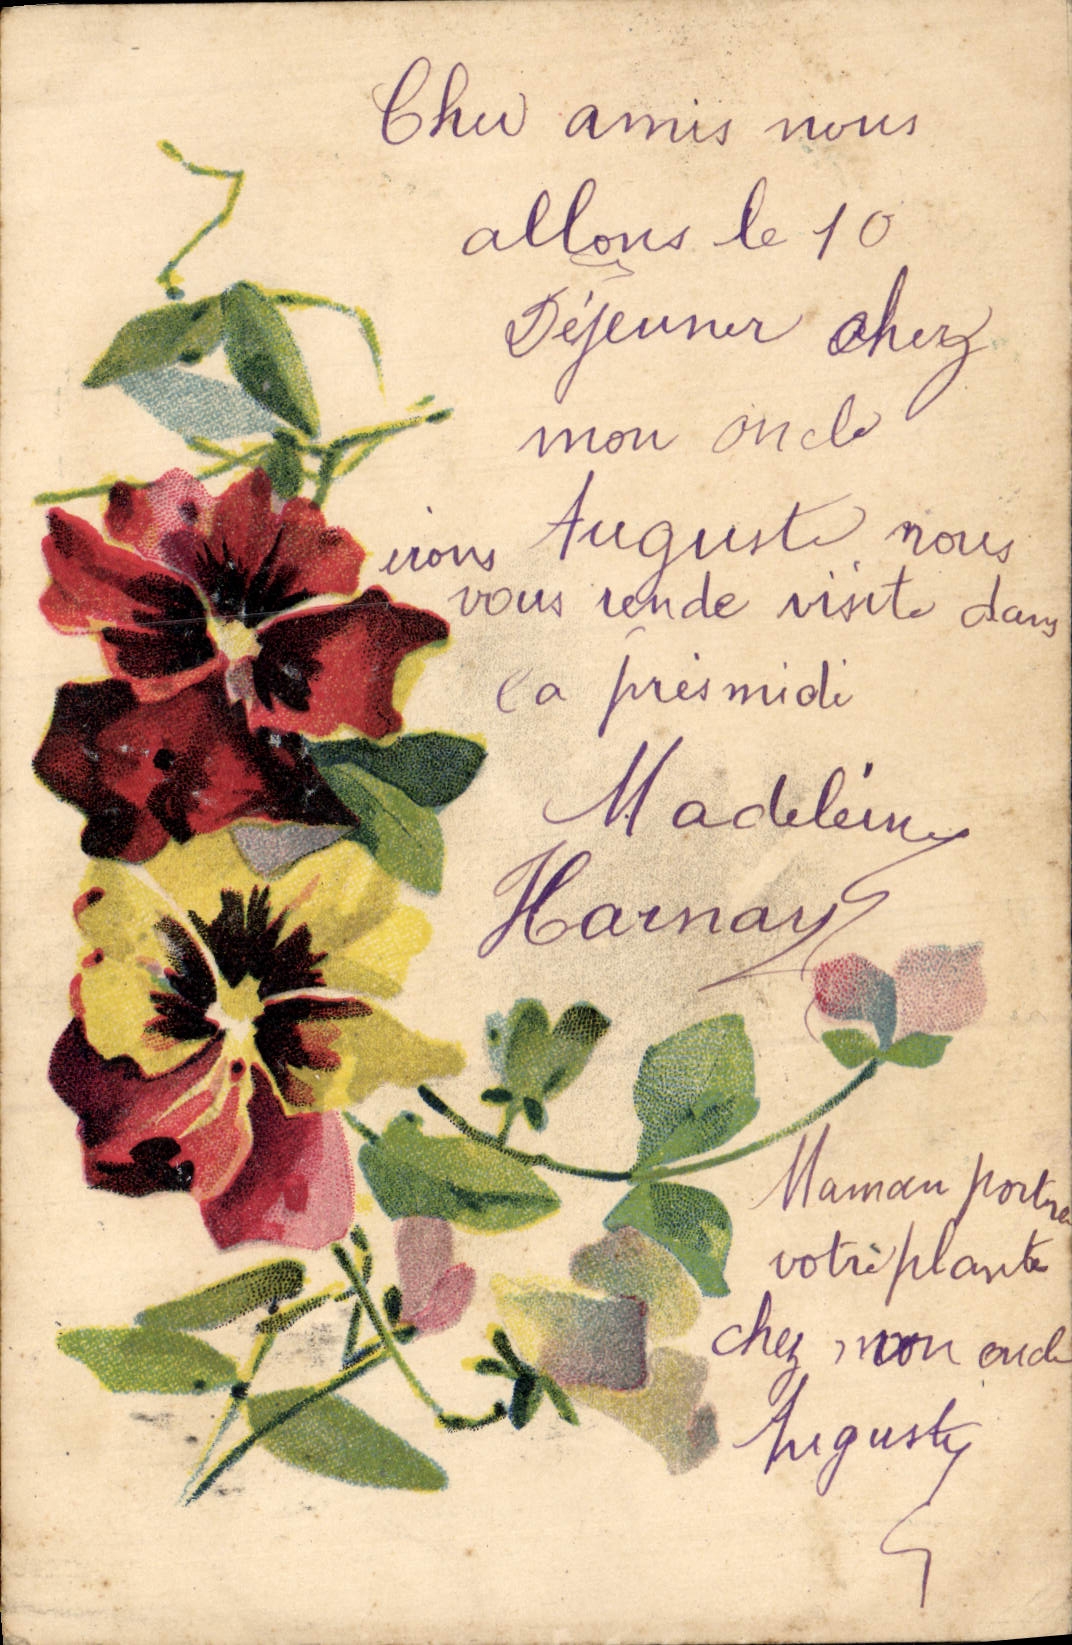 Cher amis nous
allons le 10
Déjeuner chez
mon oncle
Auguste nous
irons vous rende visite dans
la présmidi
Madeleine
Harnay
Maman portera
votre plante
chez mon oncle
Auguste